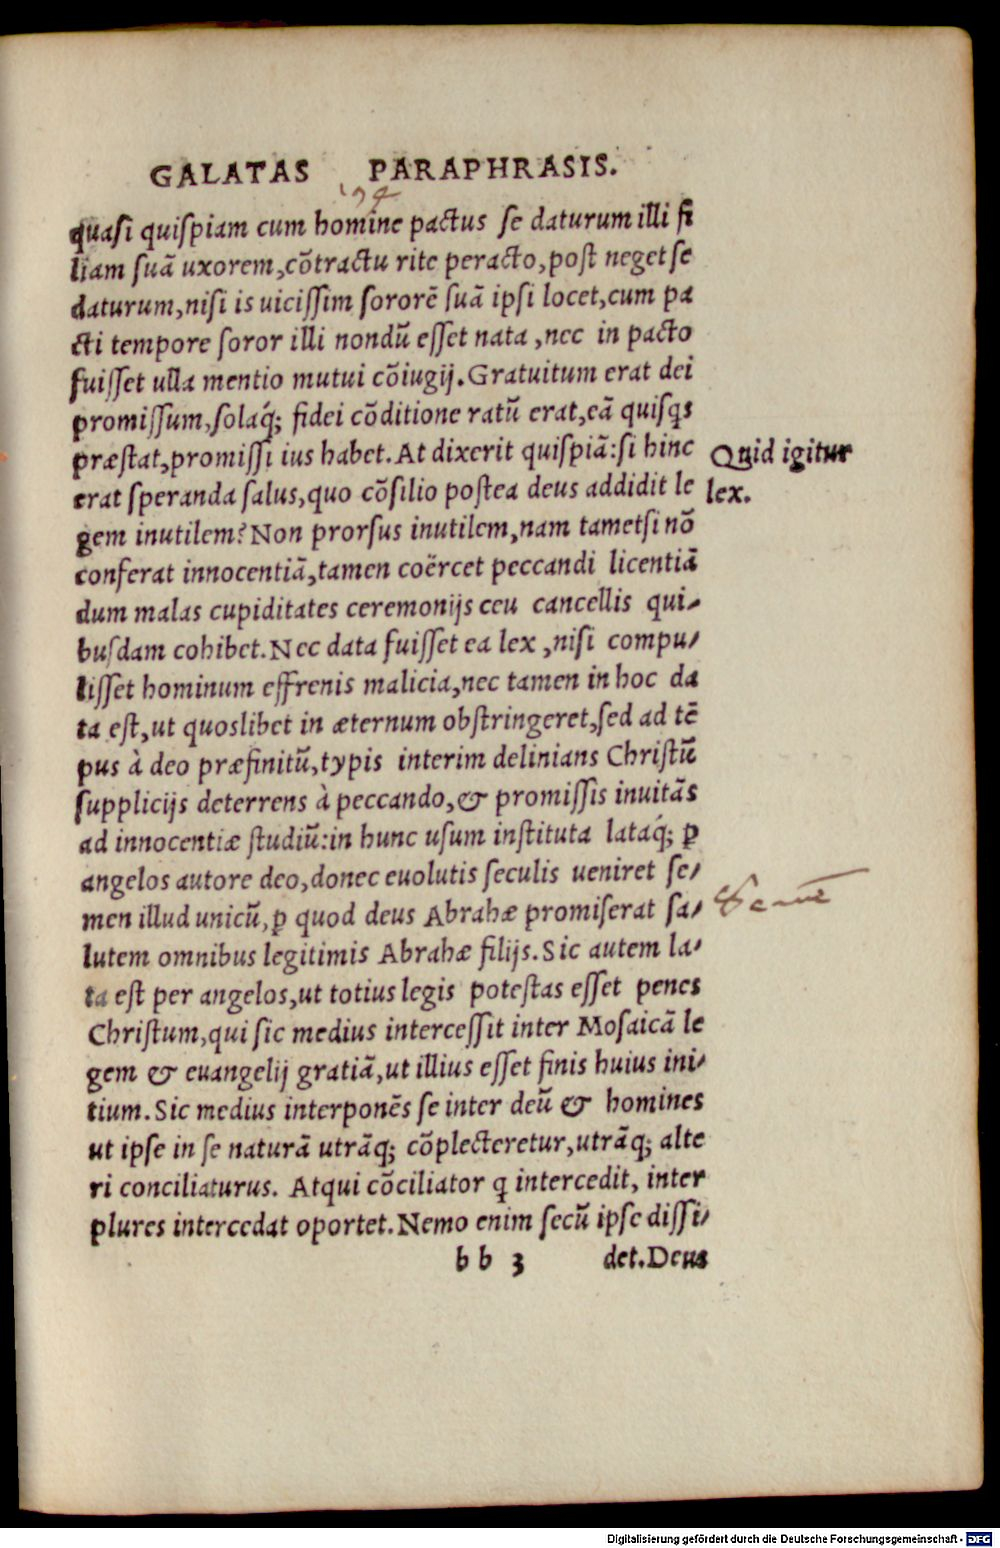 GALATAS PARAPHRASIS.
194
quasi quiſpiam cum homine pactus ſe daturum illi fi
liam ſuã uxorem, cõtractu rite peracto, poſt neget ſe
daturum, niſi is uiciſſim ſororẽ ſuã ipſi locet, cum pa
cti tempore ſoror illi nondũ eſſet nata, nec in pacto
fuiſſet ulla mentio mutui cõiugij. Gratuitum erat dei
promiſſum, ſolaq́; fidei cõditione ratũ erat, eã quiſqs
præſtat, promiſſi ius habet. At dixerit quiſpiã: ſi hinc
Quid igitur
erat ſperanda ſalus, quo cõſilio poſtea deus addidit le
lex.
gem inutilem? Non prorſus inutilem, nam tametſi nõ
conferat innocentiã, tamen coërcet peccandi licentiã
dum malas cupiditates ceremonijs ceu cancellis qui-
buſdam cohibet. Nec data fuiſſet ea lex, niſi compu-
liſſet hominum effrenis malicia, nec tamen in hoc da
ta eſt, ut quoslibet in æternum obſtringeret, ſed ad tẽ
pus à deo præfinitũ, typis interim delinians Chriſtũ
ſupplicijs deterrens à peccando, & promiſſis inuitãs
ad innocentiæ ſtudiũ: in hunc uſum inſtituta lataq́; ꝑ
angelos autore deo, donec euolutis ſeculis ueniret ſe-
men illud unicũ, ꝑ quod deus Abrahæ promiſerat ſa-
lutem omnibus legitimis Abrahæ filijs. Sic autem la-
ta eſt per angelos, ut totius legis poteſtas eſſet penes
Chriſtum, qui ſic medius interceſſit inter Moſaicã le
gem & euangelij gratiã, ut illius eſſet finis huius ini-
tium. Sic medius interponẽs ſe inter deũ & homines
ut ipſe in ſe naturã utrãq; cõplecteretur, utrãq; alte
ri conciliaturus. Atqui cõciliator q intercedit, inter
plures intercedat oportet. Nemo enim ſecũ ipſe diſſi-
bb 3 det. Deus
Digitalisierung gefördert durch die Deutsche Forschungsgemeinschaft - DFG